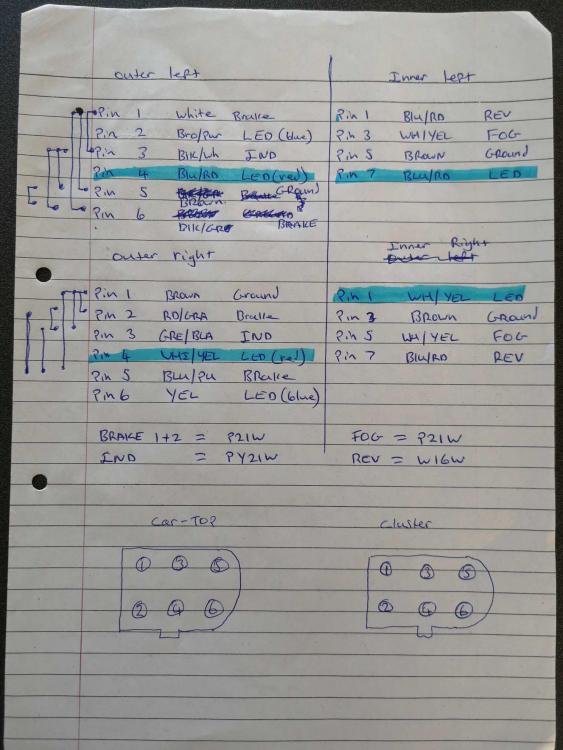 Outer left
Pin 1 White Brake
Pin 2 Bro/Pur LED (blue)
Pin 3 Blk/Wh IND
Pin 4 Blu/RD LED (red)
Pin 5 Ground
BROWN
Pin 6
BLK/GRE BRAKE
Inner left
Pin 1 Blu/RD REV
Pin 3 WH/YEL FOG
Pin 5 BROWN Ground
Pin 7 Blu/RD LED
Outer right
Pin 1 Brown Ground
Pin 2 RD/GRA Brake
Pin 3 GRE/BLA IND
Pin 4 WHI/YEL LED (red)
Pin 5 BLU/PU BRake
Pin 6 YEL LED (blue)
Inner Right
Outer left
Pin 1 WH/YEL LED
Pin 3 BROWN Ground
Pin 5 WH/YEL FOG
Pin 7 Blu/RD REV
BRAKE 1+2 = P21W
IND = PY21W
FOG = P21W
REV = W16W
Car-TOP
1 3 5
2 4 6
Cluster
1 3 5
2 4 6